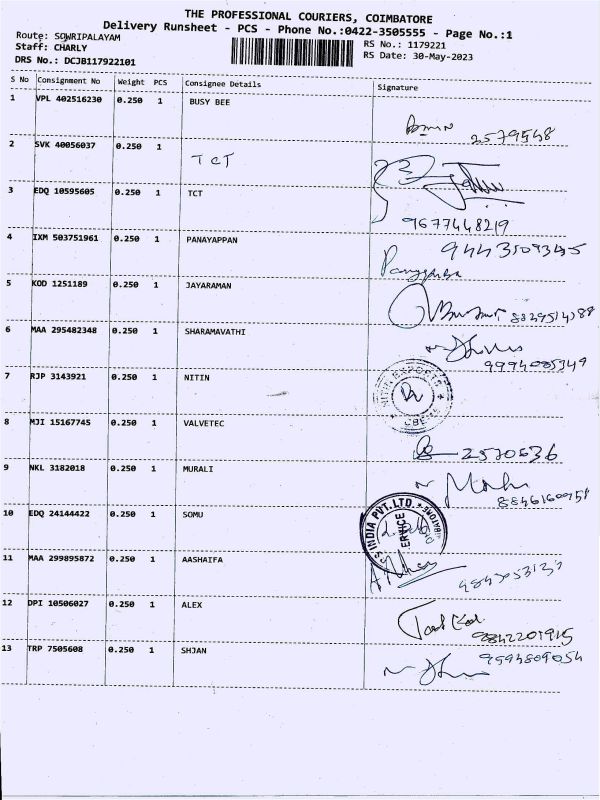 THE PROFESSIONAL COURIERS, COIMBATORE
Delivery Runsheet - PCS - Phone No.:0422-3505555 - Page No.:1
Route: SOWRIPALAYAM
RS No.: 1179221
Staff: CHARLY
RS Date: 30-May-2023
DRS No.: DCJB117922101
S No Consignment No Weight PCS Consignee Details Signature
1 VPL 402516230 0.250 1 BUSY BEE
2579548
2 SVK 40056037 0.250 1 TCT
3 EDQ 10595605 0.250 1 TCT
9677448219
4 IXM 503751961 0.250 1 PANAYAPPAN
9443509345
5 KOD 1251189 0.250 1 JAYARAMAN
6 MAA 295482348 0.250 1 SHARAMAVATHI
9994085349
7 RJP 3143921 0.250 1 NITIN
8 MJI 15167745 0.250 1 VALVETEC
2570636
9 NKL 3182018 0.250 1 MURALI
10 EDQ 24144422 0.250 1 SOMU
INDIA PVT.LTD.
SERVICE
11 MAA 299895872 0.250 1 AASHAIFA
12 DPI 10506027 0.250 1 ALEX
9842201915
13 TRP 7505608 0.250 1 SHJAN
9994809054